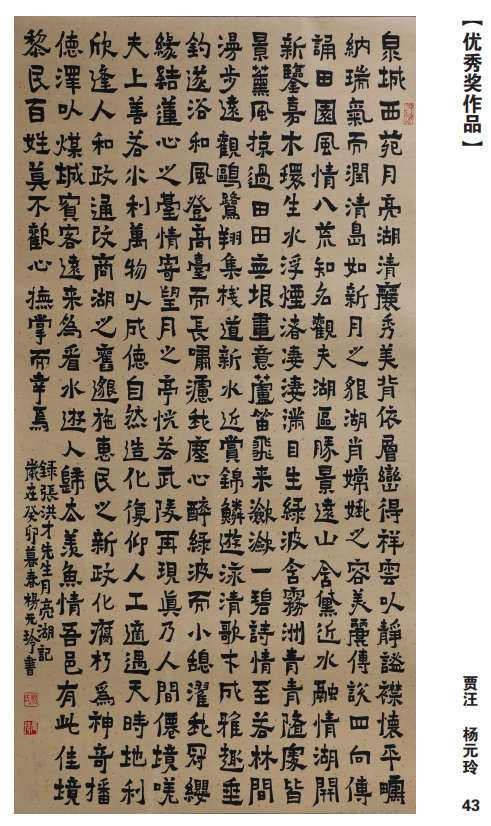 【优秀奖作品】
泉城西苑月亮湖清麗秀美背依層巒得祥雲以靜謐襟懷平曠
納瑞氣而潤清島如新月之貌湖肖嫦娥之容美麗傳說四向傳
誦田園風情八荒知名觀夫湖區勝景遠山含黛近水融情湖開
新鑒嘉木環生水浮煙渚淒淒滿目生綠波含霧洲青青隨處皆
景薰風掠過田田垂垠畫意蘆笛飛来瀲瀲一碧詩情至若林間
漫步遠觀鷗鷺翔集棧道新水近賞錦鱗遊泳清歌卞成雅趣垂
釣遂浴和風登高臺而長嘯濾扵塵心醉綠波而小憩濯扵冠纓
緣結蓮心之臺情寄望月之亭恍若武陵再現真乃人間僊境嘆
夫上善若水利萬物以成德自然造化復仰人工適遇天時地利
欣逢人和政通改商湖之舊施惠民之新政化腐朽為神奇播
德澤以煤城賓客遠来為看水遊人歸去羨魚情吾邑有此佳境
黎民百姓莫不歡心撫掌而幸焉
錄張洪才先生月亮湖記
歲在癸卯暮春楊元玲書
贾汪 杨元玲
43